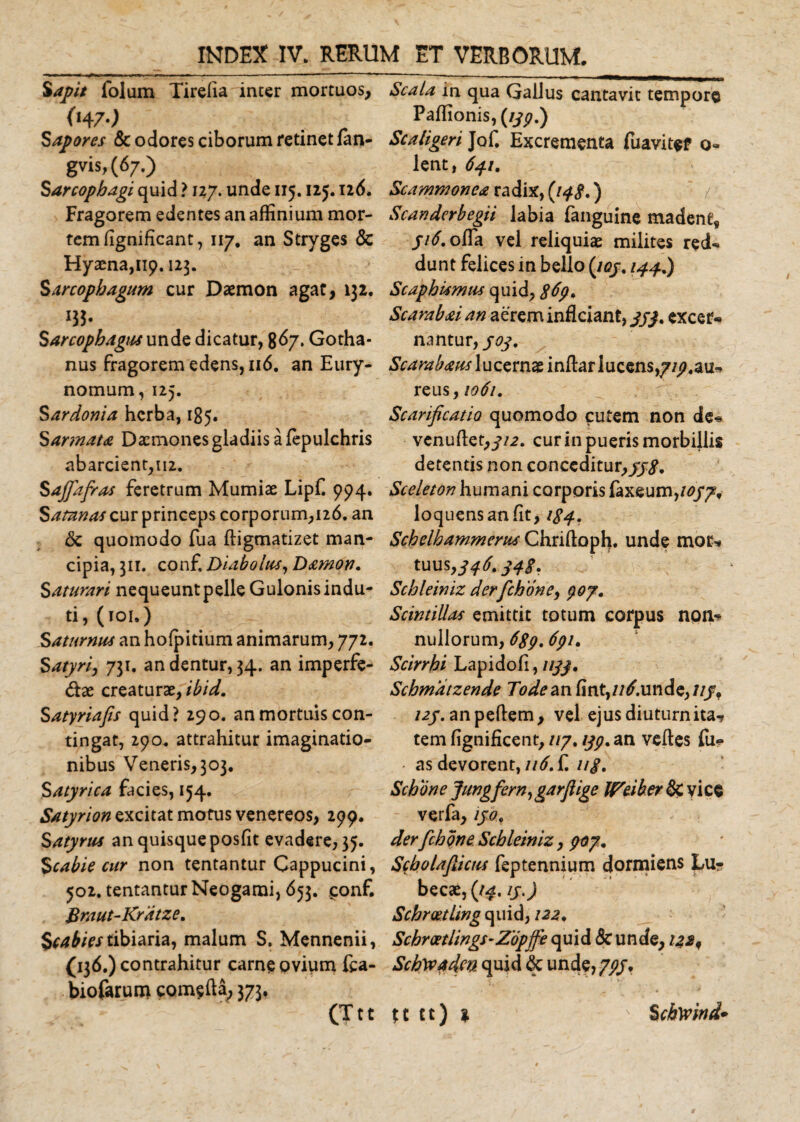 INDEX IV. RERUM ET VERBORUM.
Sapit ſolum Tireſia inter mortuos,
(147.)
Sapores & odores ciborum retinet ſan-
gvis, (67.)
Sarcophagi quid? 127. unde 115. 125. 126.
Fragorem edentes an affinium mor-
tem ſignificant, 117. an Stryges &
Hyæna, 119. 123.
Sarcophagum cur Dæmon agat, 132.
133.
Sarcophagus unde dicatur, 867. Gotha-
nus fragorem edens, 116. an Eury-
nomum, 125.
Sardonia herba, 185.
Sarmatæ Dæmones gladiis à ſepulchris
abarcient, 112.
Saſſafras feretrum Mumiæ Lipſ. 994.
Satanas cur princeps corporum, 126. an
& quomodo ſua ſtigmatizet man-
cipia, 311. conf. Diabolus, Dæmon.
Saturari nequeunt pelle Gulonis indu-
ti, (101.)
Saturnus an hoſpitium animarum, 772.
Satyri, 731. an dentur, 34. an imperfe-
ctæ creaturæ, ibid.
Satyriaſis quid? 290. an mortuis con-
tingat, 290. attrahitur imaginatio-
nibus Veneris, 303.
Satyrica facies, 154.
Satyrion excitat motus venereos, 299.
Satyrus an quisque posſit evadere, 35.
Scabie cur non tentantur Cappucini,
502. tentantur Neogami, 653. conf.
Braut-Krätze.
Scabies tibiaria, malum S. Mennenii,
(136.) contrahitur carne ovium ſca-
bioſarum comeſtâ, 373.
Scala in qua Gallus cantavit tempore
Paſſionis, (139.)
Scaligeri Joſ. Excrementa ſuaviter o-
lent, 641.
Scammoneæ radix, (148.)
Scanderbegii labia ſanguine madent,
516. oſſa vel reliquiæ milites red-
dunt felices in bello (105. 144.)
Scaphismus quid, 869.
Scarabæi an aërem inficiant, 353. excer-
nantur, 503.
Scarabæus lucernæ inſtar lucens, 719. au-
reus, 1061.
Scarificatio quomodo cutem non de-
venuſtet, 312. cur in pueris morbillis
detentis non conceditur, 558.
Sceleton humani corporis ſaxeum, 1057.
loquens an ſit, 184.
Schelhammerus Chriſtoph. unde mor-
tuus, 346. 348.
Schleiniz der ſchöne, 907.
Scintillas emittit totum corpus non-
nullorum, 689. 691.
Scirrhi Lapidoſi, 1133.
Schmätzende Tode an ſint, 116. unde, 115.
125. an peſtem, vel ejus diuturnita-
tem ſignificent, 117. 139. an veſtes ſu-
as devorent, 116. ſ. 118.
Schöne Jungfern, garſtige Weiber & vice
verſa, 150.
der ſchöne Schleiniz, 907.
Scholaſticus ſeptennium dormiens Lu-
becæ, (14. 15.)
Schrœtling quid, 122.
Schrœtlings-Zöpffe quid & unde, 122.
Schwaden quid & unde, 795.
(Ttt tt tt) 2 Schwind-